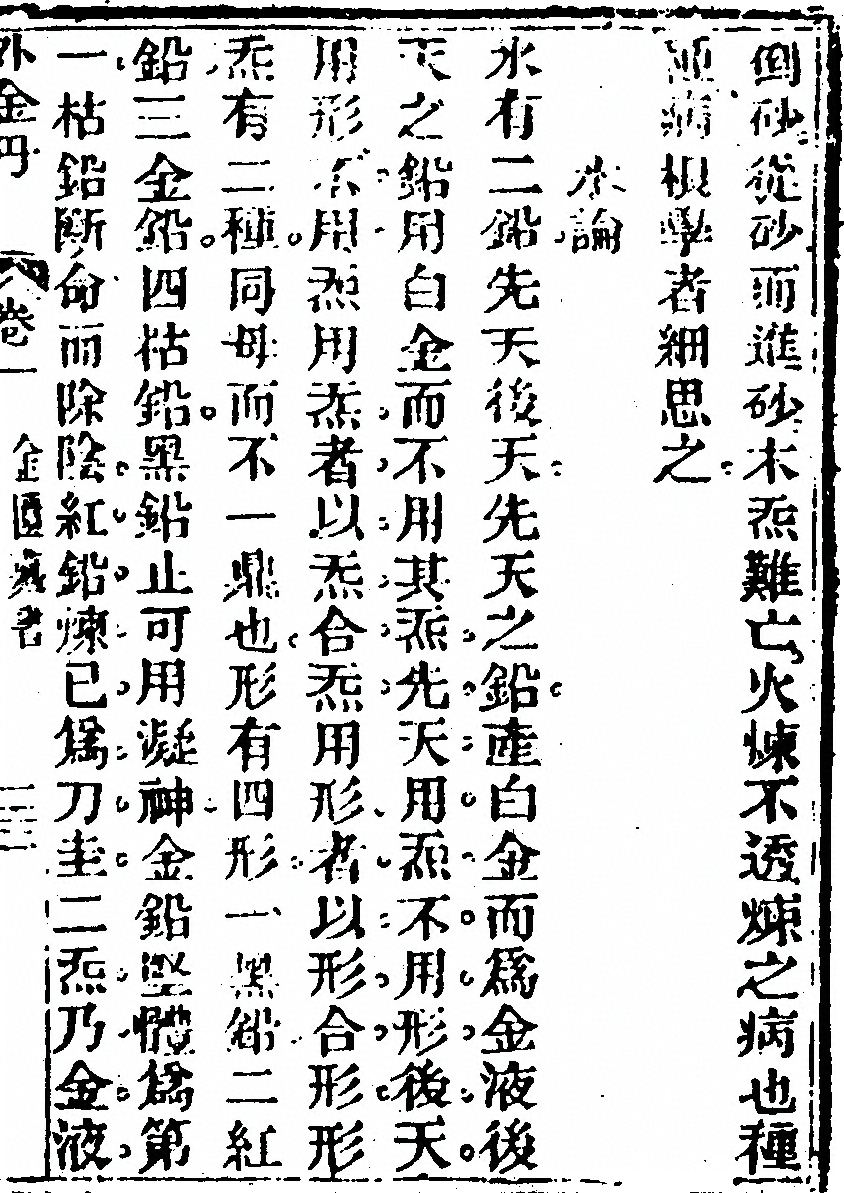 倒砂從砂而進砂木炁難亡火煉不透煉之病也種
種病根學者細思之
水論
水有二鉛先天後天先天之鉛產白金而爲金液後
天之鉛用白金而不用其炁先天用炁不用形後天
用形不用炁用炁者以炁合炁用形者以形合形形
炁有二種同母而不一鼎也形有四形一黑鉛二紅
鉛三金鉛四枯鉛黑鉛止可用凝神金鉛堅體爲第
一枯鉛斷命而除陰紅鉛煉已爲刀圭二炁乃金液
外金丹 卷一 金匱藏書 二三